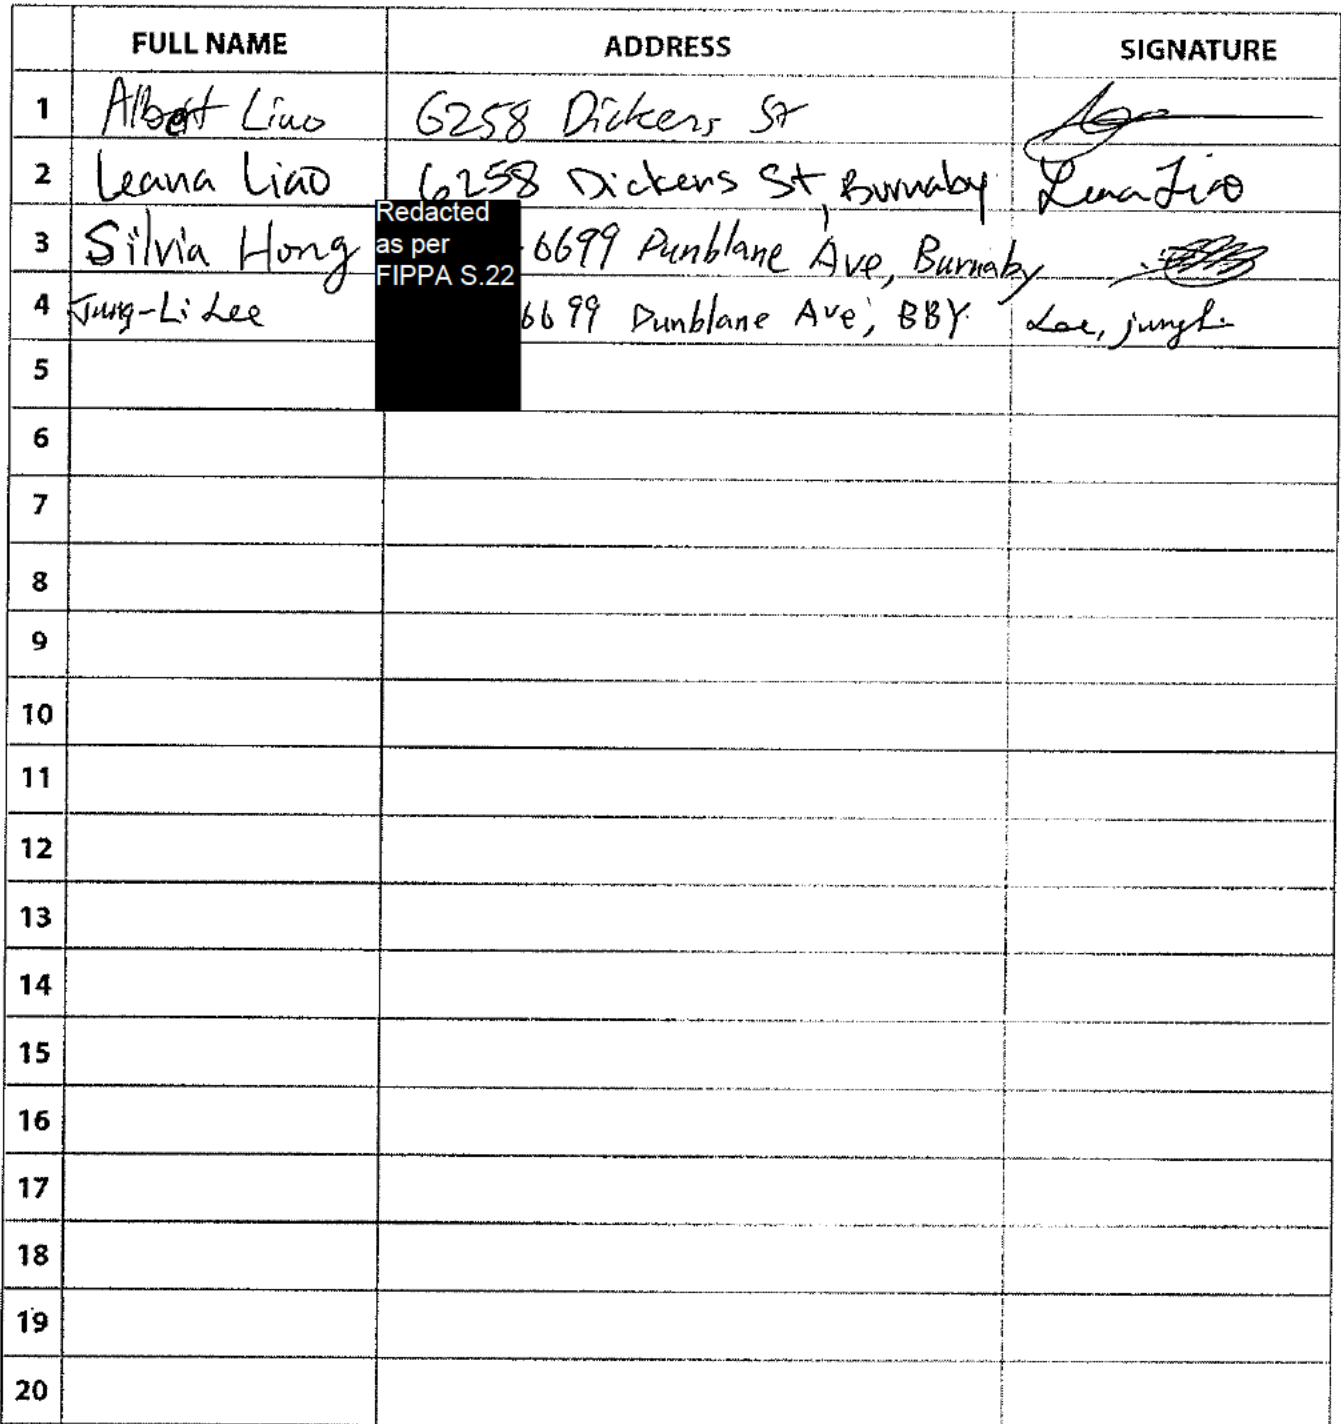 FULL NAME ADDRESS SIGNATURE
1 Albert Liao 6258 Dickens St
2 Leana Liao 6258 Dickens St, Burnaby Leana Liao
Redacted
as per
FIPPA S.22
3 Silvia Hong 6699 Dunblane Ave, Burnaby
4 Jung-Li Lee 6699 Dunblane Ave, BBY Lee, jungli
5
6
7
8
9
10
11
12
13
14
15
16
17
18
19
20